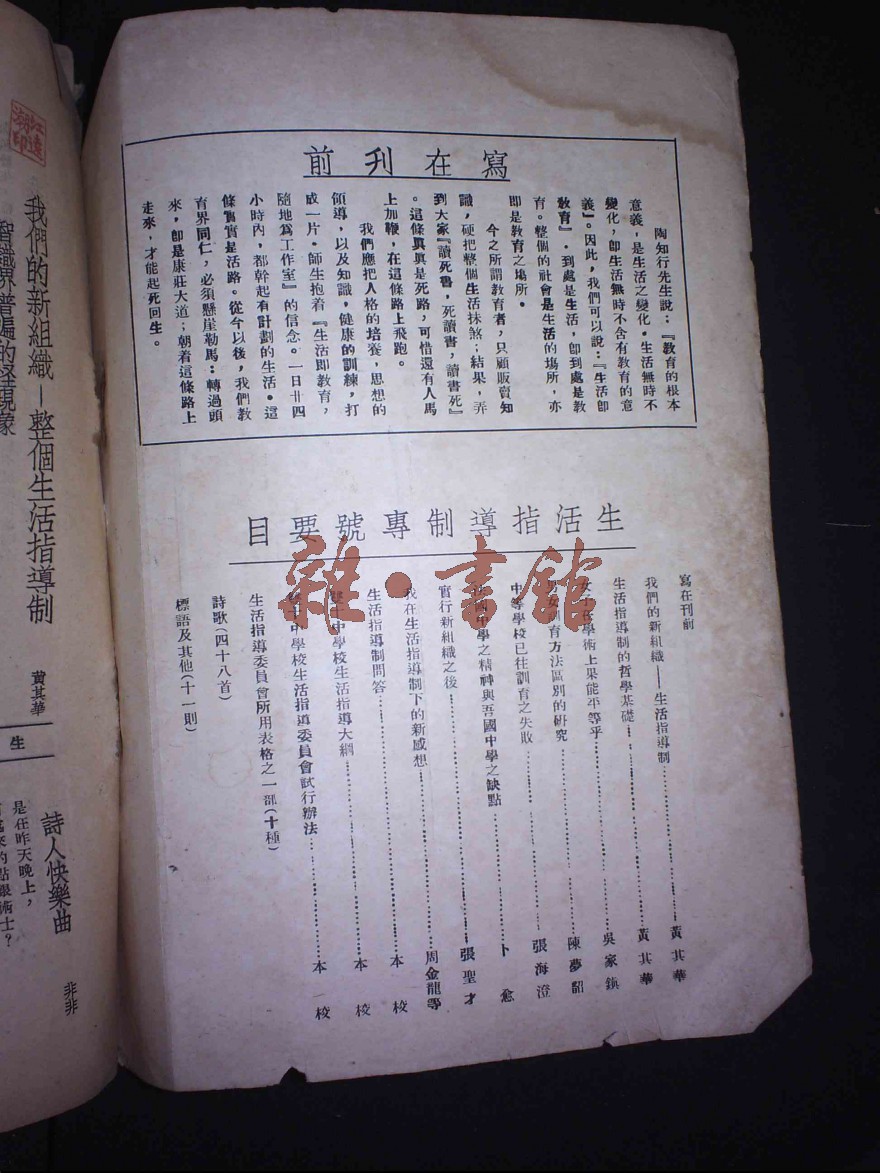 寫在刋前
陶知行先生說：『教育的根本
意義，是生活之變化。生活無時不
變化，卽生活無時不含有教育的意
義』。因此，我們可以說：『生活卽
教育』．到處是生活，卽到處是教
育。整個的社會是生活的塲所，亦
卽是教育之塲所。
今之所謂教育者，只顧販賣知
識，硬把整個生活抹煞；結果，弄
到大家『讀死書，死讀書，讀書死』
。這條眞眞是死路，可惜還有人馬
上加鞭，在這條路上飛跑。
我們應把人格的培養，思想的
領導，以及知識，健康的訓練，打
成一片。師生抱着『生活卽教育，
隨地爲工作室』的信念。一日廿四
小時內，都幹起有計劃的生活。這
條舊實是活路。從今以後，我們教
育界同仁，必須懸崖勒馬：轉過頭
來，卽是康莊大道；朝着這條路上
走來，才能起死回生。
生活指導制專號要目
寫在刋前
我們的新組織——生活指導制 黃其華
生活指導制的哲學基礎 黃其華
女子在學術上果能平等乎 吳家鎮
男女訓育方法區別的研究 陳夢韶
中等學校已往訓育之失敗 張海澄
國中學之精神與吾國中學之缺點 卜愈
實行新組織之後 張聖才
我在生活指導制下的新感想 周金龍等
生活指導制問答 本校
雙十中學校生活指導大綱 本校
雙十中學校生活指導委員會試行辦法 本校
生活指導委員會所用表格之一部（十種）
詩歌（四十八首）
標語及其他（十一則）
雜·書館
我們的新組織—整個生活指導制
黃其華
智識界普遍的怪現象
生
詩人快樂曲
非非
是在昨天晚上，